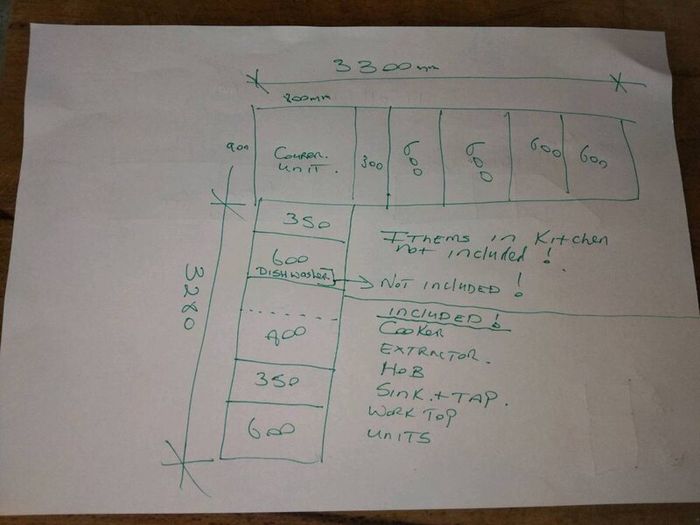 3300mm
800mm
900
CORNER.
UNIT.
300
600
600
600
600
350
600
DISHWASHER
3280
900
350
600
ITHEMS IN KITCHEN
NOT INCLUDED !
NOT INCLUDED !
INCLUDED !
COOKER
EXTRACTOR.
HOB
SINK.+TAP.
WORK TOP
UNITS